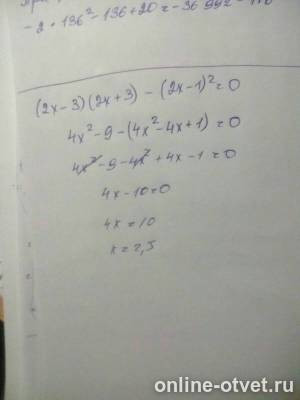 - 2 · 136² - 136 + 20 = - 36 992 -
(2x-3)(2x+3) - (2x-1)² = 0
4x² - 9 - (4x² - 4x + 1) = 0
4x² - 9 - 4x² + 4x - 1 = 0
4x - 10 = 0
4x = 10
x = 2,5
online-otvet.ru